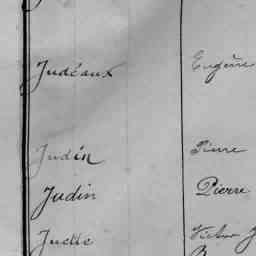 Judéaux Eugène
Judin Pierre
Judin Pierre
Juette Victor J